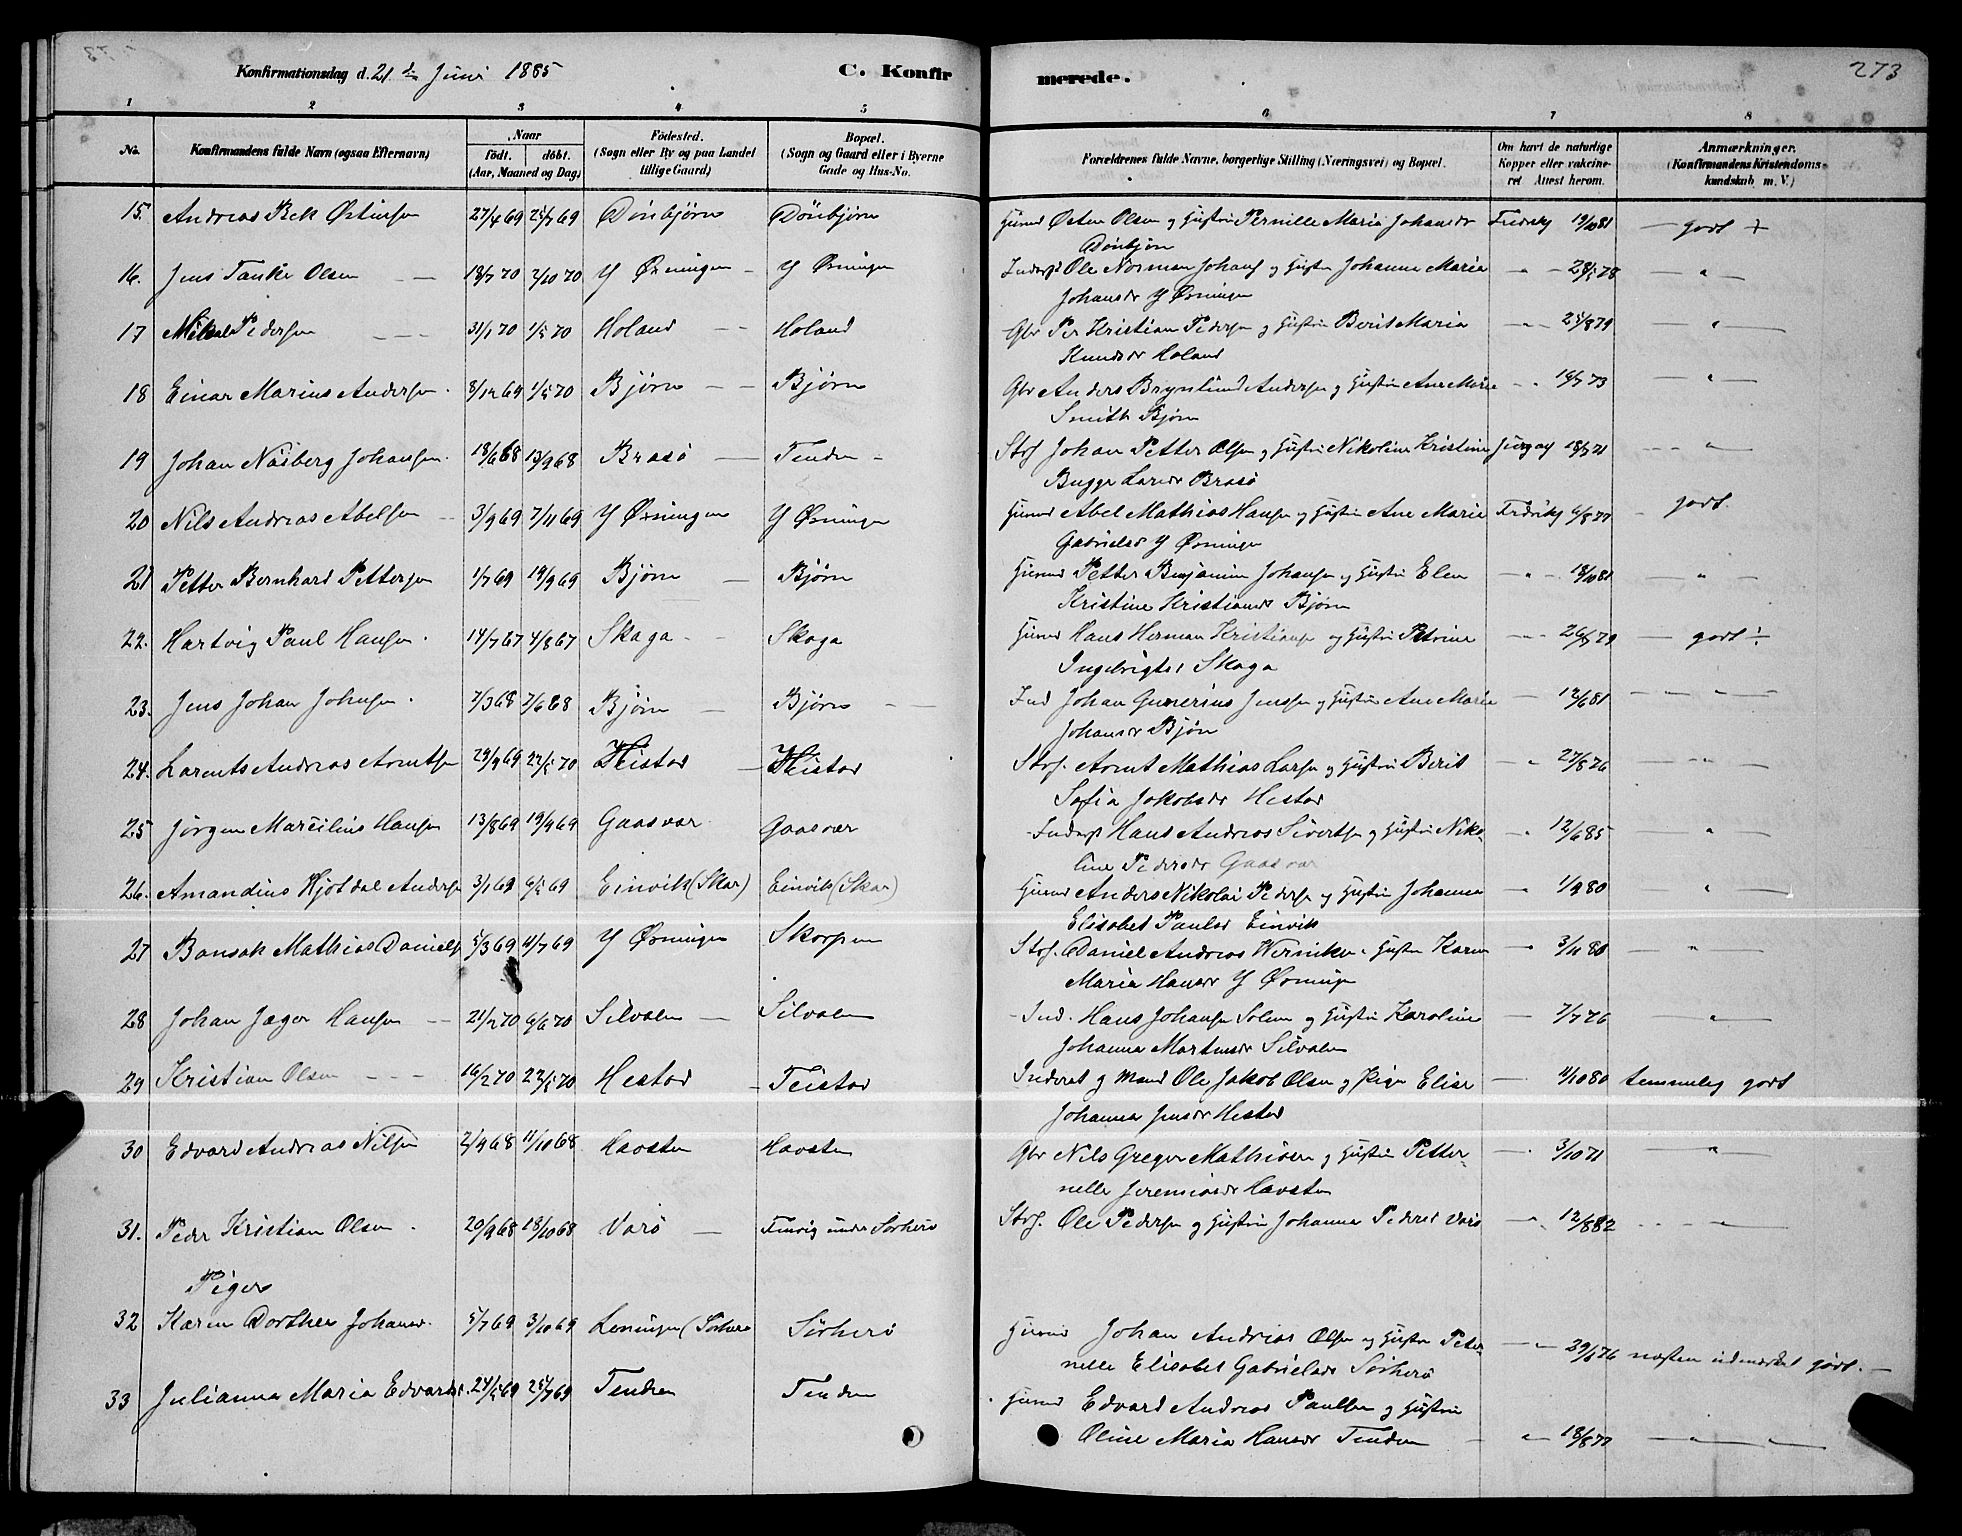 Konfirmationsdag d. 21 de Juni 1885
C. Konfirmerede.
273
1 2 3 4 5 6 7 8
No.
Konfirmandens fulde Navn (ogsaa Efternavn)
Naar
födt. döbt.
(Aar, Maaned og Dag)
Födested.
(Sogn eller By og paa Landet
tillige Gaard)
Bopæl.
(Sogn og Gaard eller i Byerne
Gade og Hus-No.
Forældrenes fulde Navne, borgerlige Stilling (Næringsvei) og Bopæl.
Om havt de naturlige
Kopper eller vakcine-
ret. Attest herom.
Anmærkninger.
(Konfirmandens Kristendoms-
kundskab m. V.)
15. Andreas Bek Östinsen 27/4 69 25/7 69 Dönbjörn Dönbjörn Östen Olsen og Hustru Pernille Maria Johansdr 19/10 81 godt +
Dönbjörn
16. Jens Tanke Olsen 18/7 70 2/10 70 Y Øxningen Y Øxningen Inderst Ole Norman Johans og Hustru Johanna Maria " 28/5 78 "
Johansdr Y Øxningen
17 Mikal Pedersen 31/1 70 1/5 70 Holand Holand Gbr Per Kristian Pedersen og Hustru Berit Maria " 25/8 79 "
Knudsdr Holand
18 Einar Marius Andersen 8/12 69 1/5 70 Bjørn Bjørn Gbr Anders Brynlund Andersen og Hustru Ane Marie " 16/7 73 "
Smith Bjørn
19 Johan Näsberg Johansen 18/6 68 13/9 68 Brasö Tendra Johan Petter Olsen og Hustru Nikoline Kristine 18/7 71 "
Bugge Larsdr Brasö
20 Nils Andreas Abelsen 3/9 69 7/11 69 Y Øxningen Y Øxningen Abel Mathias Hansen og Hustru Ane Maria 6/8 77 godt.
Gabrielsdr Y Øxningen
21 Petter Bernhard Pettersen 1/7 69 19/9 69 Bjørn Bjørn Petter Benjamin Johansen og Hustru Elen " 18/10 81 "
Kristine Kristiansdr Bjørn
22. Hartvig Paul Hansen 14/7 67 4/8 67 Skaga Skaga Hans Herman Kristiansen og Hustru Petrine " 26/7 79 godt ÷
Ingebrigtsd Skaga
23. Jens Johan Johnsen 7/3 68 7/6 68 Bjørn Bjørn Ind Johan Gunerius Jenssen og Hustru Ane Marie 12/6 81 "
Johansdr Bjørn
24. Larents Andreas Arntsen 29/9 69 22/5 70 Heistad Heistad Arnt Mathias Larsen og Hustru Berit " 27/8 76 "
Sofia Jakobsdr Hestad
25 Jörgen Marcilius Hansen 13/8 69 19/9 69 Gaasvar Gaasvar Inderst Hans Andreas Sivertsen og Hustru Niko- " 12/6 85 "
line Pedersdr Gaasvar
26. Amandius Hjotdal Andersen 3/1 69 6/5 69 Einvik (Skar) Einvik (Skar) Anders Nikolai Pedersen og Hustru Johanna " 1/9 80 "
Elisabet Paulsd Einvik
27 Bansak Mathias Daniels 5/3 69 11/7 69 Y Øxningen Skorpen Daniel Andreas Wernike Hustru Karen 3/11 80 "
Maria Hansdr Y Øxningen
28 Johan Jæger Hansen 21/2 70 6/6 70 Silvalen Silvalen Ind. Hans Johansen Solem og Hustru Karoline 7/7 76 "
Johanna Martinsdr Silvalen
29 Kristian Olsen 16/2 70 22/5 70 Hestad Teistad Inderst g Mand Ole Jakob Olsen og Pige Elise 11/10 80 temmelig godt
Johanna Jensdr Hestad
30 Edvard Andreas Nilsen 2/9 68 11/10 68 Havsten Havsten Gbr Nils Greger Mathisen og Hustru Petter- 3/10 71 "
nelle Jeremiasdr Havsten
31. Peder Kristian Olsen 20/9 68 18/10 68 Varö under Sörherö Ole Pedersen og Hustru Johanna Pedersd Varö 12/8 82 "
Piger
32 Karen Dorthea Johansd. 5/7 69 3/10 69 Leningen (Sörherö Sörherö Johan Andreas Olsen og Hustru Peter- " 29/6 76 næsten udmerket godt.
nelle Elisabet Gabrielsdr Sörherö
33 Julianna Maria Edvardsd. 24/5 69 25/7 69 Tendra Tendra Edvard Andreas Paulsen og Hustru
Oline Maria Hansdr Tendra " 18/8 77 "